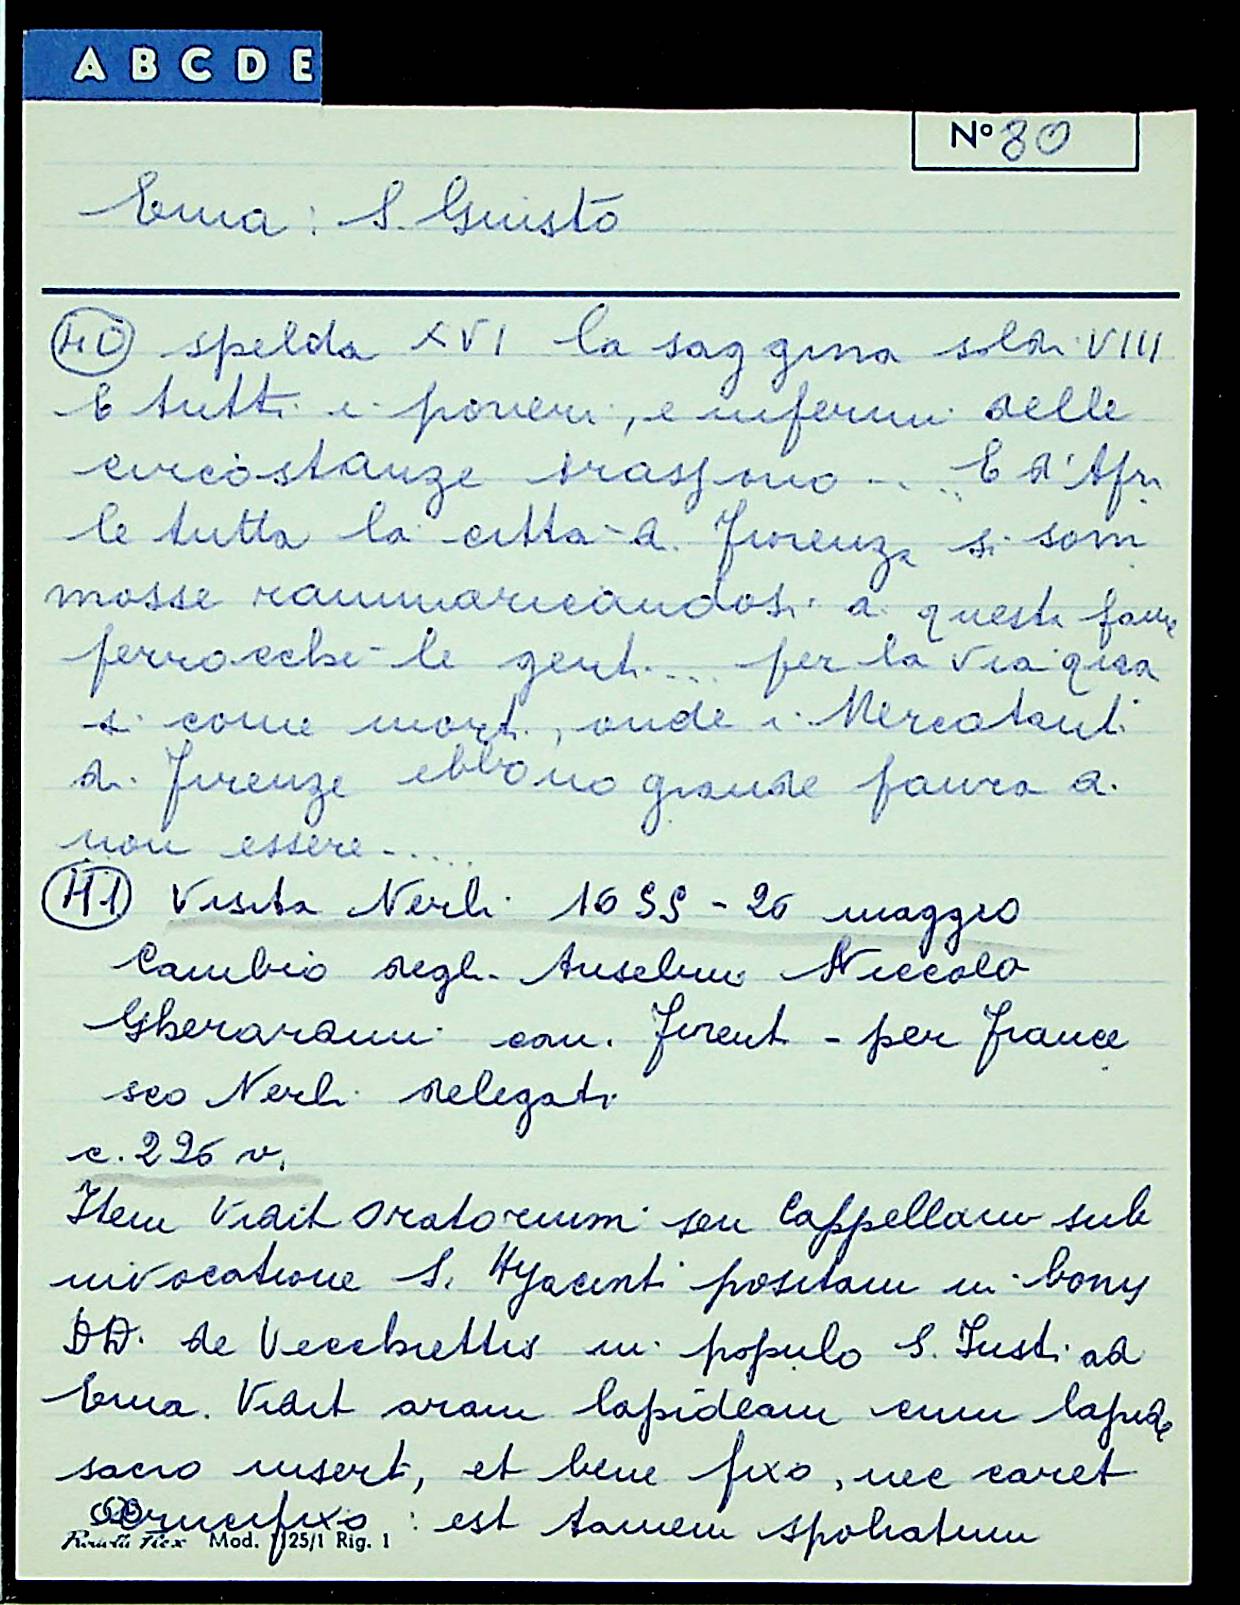 A B C D E
Nº 80
Ema : S. Giusto
40 spelda XVI la saggina soldi VIII
E tutti i poveri, e infermi delle
circostanze trassono .... E d'Apri
le tutta la città di Fiorenza si som
mosse rammaricandosi di questi
perrocchè le genti .... per la via
si come morti, onde i Mercatanti
di Firenze ebbono grande paura di
non essere .....
41 Visita Nerli 1655 - 26 maggio
Cambio degli Anselmi Niccolò
Gherardini can. Fiorent - per France
sco Nerli delegati
c. 226 v.
Item Vidit Oratorium seu Cappellam sub
invocatione S. Hyacinti positam in bonis
DD. de Vecchiettis in populo S. Justi ad
Ema. Vidit aram lapideam cum lapide
sacro inserti, et bene fixo, nec caret
Crucifixo : est tamen spoliatum
Flex Mod. 125/1 Rig. 1